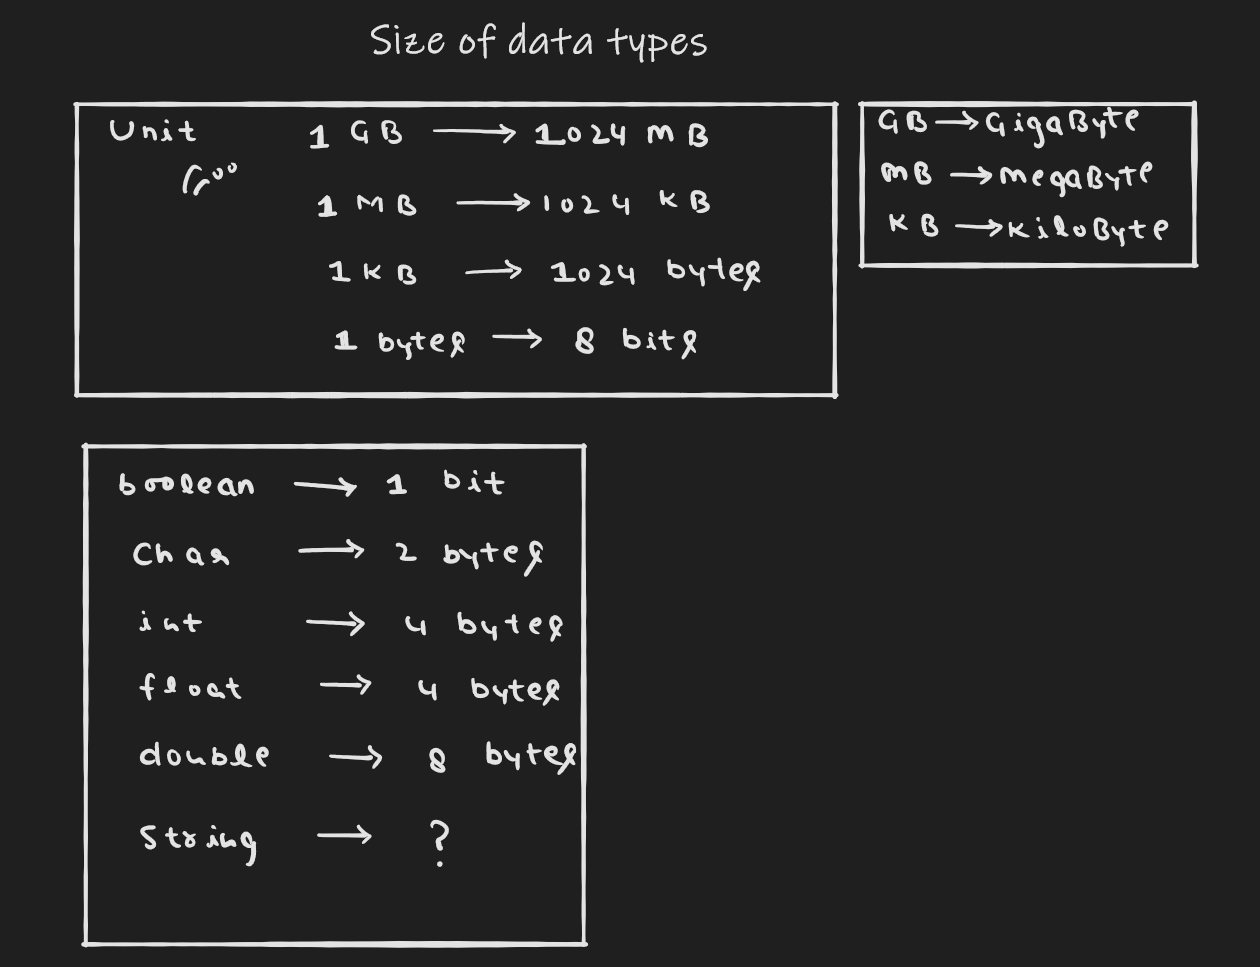 Size of data types
Unit
1 GB → 1024 MB
1 MB → 1024 KB
1 KB → 1024 bytes
1 bytes → 8 bits
GB → GigaByte
MB → MegaByte
KB → KiloByte
boolean → 1 bit
Char → 2 bytes
int → 4 bytes
float → 4 bytes
double → 8 bytes
String → ?